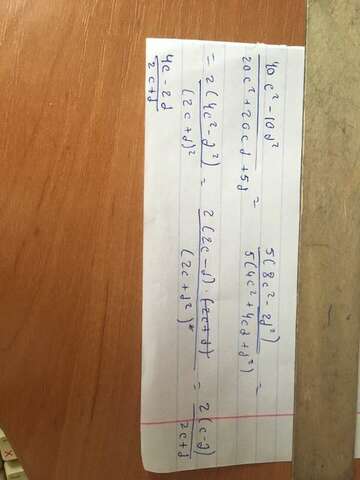 40c² - 10d² / 20c² + 20cd + 5d² = 5(8c² - 2d²) / 5(4c² + 4cd + d²) =
= 2(4c² - d²) / (2c + d)² = 2(2c - d) · (2c + d) / (2c + d²)* = 2(c - d) / 2c + d
4c - 2d / 2c + d